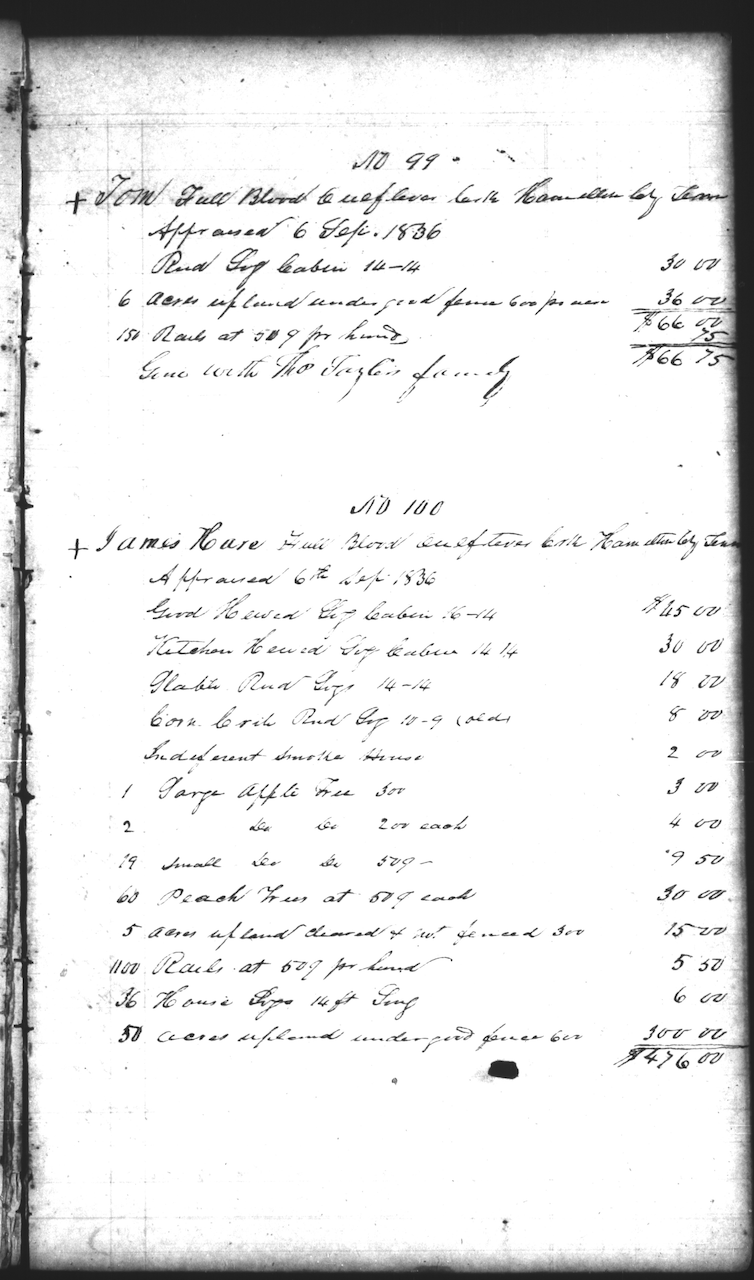 No 99
+ Tom Full Blood Creek Hamilton Cty Tenn
Appraised 6 Sep. 1836
Rnd Log Cabin 14-14 30 00
6 acres upland under good fence 600 pr acre 36 00
$66 00
150 Rails at 50¢ pr hund 75
$66 75
Gone with Thos Taylors family
No 100
+ James Hare Full Blood Creek Hamilton Cty Tenn
Appraised 6th Sep 1836
Good Hewed Log Cabin 16-14 $45 00
Kitchen Hewed Log Cabin 14 14 30 00
Stable Rnd Logs 14-14 18 00
Corn Crib Rnd Log 10-9 (old) 8 00
Indeferent Smoke House 2 00
1 Large Apple Tree 300 3 00
2 Do Do 200 each 4 00
19 small Do Do 50¢ - 9 50
60 Peach Trees at 50¢ each 30 00
5 acres upland cleared & not fenced 300 15 00
1100 Rails at 50¢ pr hund 5 50
36 House Logs 14 ft Long 6 00
50 acres upland under good fence 600 300 00
$476 00